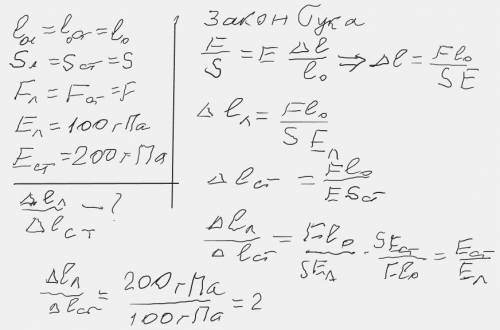 l₀л = l₀ст = l₀
Sл = Sст = S
Fл = Fст = F
Eл = 100 гПа
Eст = 200 гПа
Δlл/Δlст – ?
Закон Гука
F/S = E Δl/l₀ ⇒ Δl = Fl₀/SE
Δlл = Fl₀/SEл
Δlст = Fl₀/ESст
Δlл/Δlст = Fl₀/SEл · SEст/Fl₀ = Eст/Eл
Δlл/Δlст = 200 гПа/100 гПа = 2